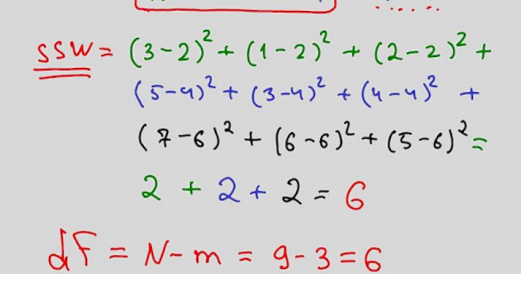 SSW = (3-2)² + (1-2)² + (2-2)² +
(5-4)² + (3-4)² + (4-4)² +
(7-6)² + (6-6)² + (5-6)² =
2 + 2 + 2 = 6
dF = N-m = 9-3=6